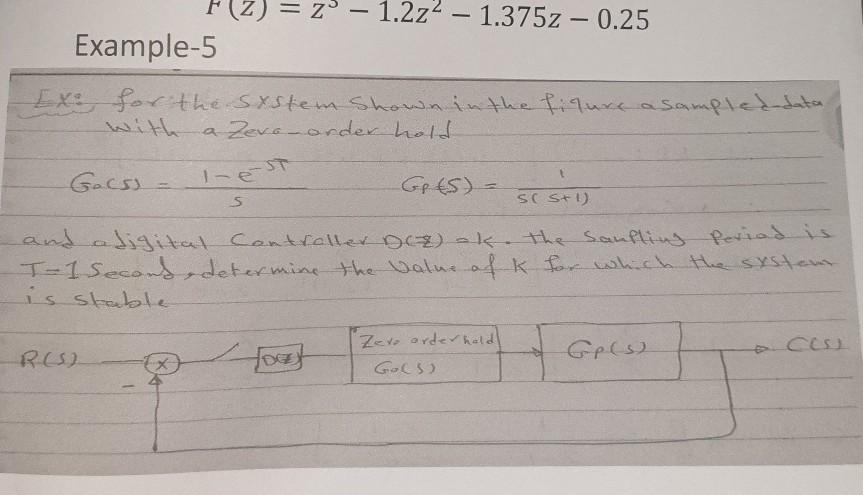 F(z) = z³ − 1.2z² − 1.375z − 0.25
Example-5
Ex: for the system shown in the figure a sampled-data
with a Zero-order hold
Go(s) = 1-e^-ST / s Gp(s) = 1 / s(s+1)
and a digital Controller D(z) = k. the Sampling Period is
T=1 Second, determine the Value of K for which the system
is stable
R(s) X D(z) Zero order hold Go(s) Gp(s) C(s)
−